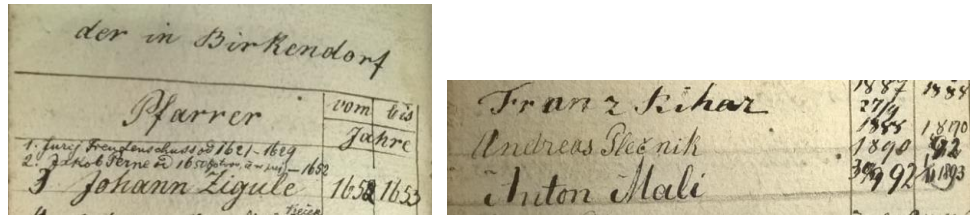 der in Birkendorf
Pfarrer vom bis
Jahre
1. Jurij Freudenschuss od 1621 - 1629
2. Jakob Perne od 1650 - 1652
3 Johann Zigule 1652 1653
Franz Rihar 1887 1888
27/9
Andreas Plečnik 1888 1890
1890 92
Anton Mali 30/9 92 1893